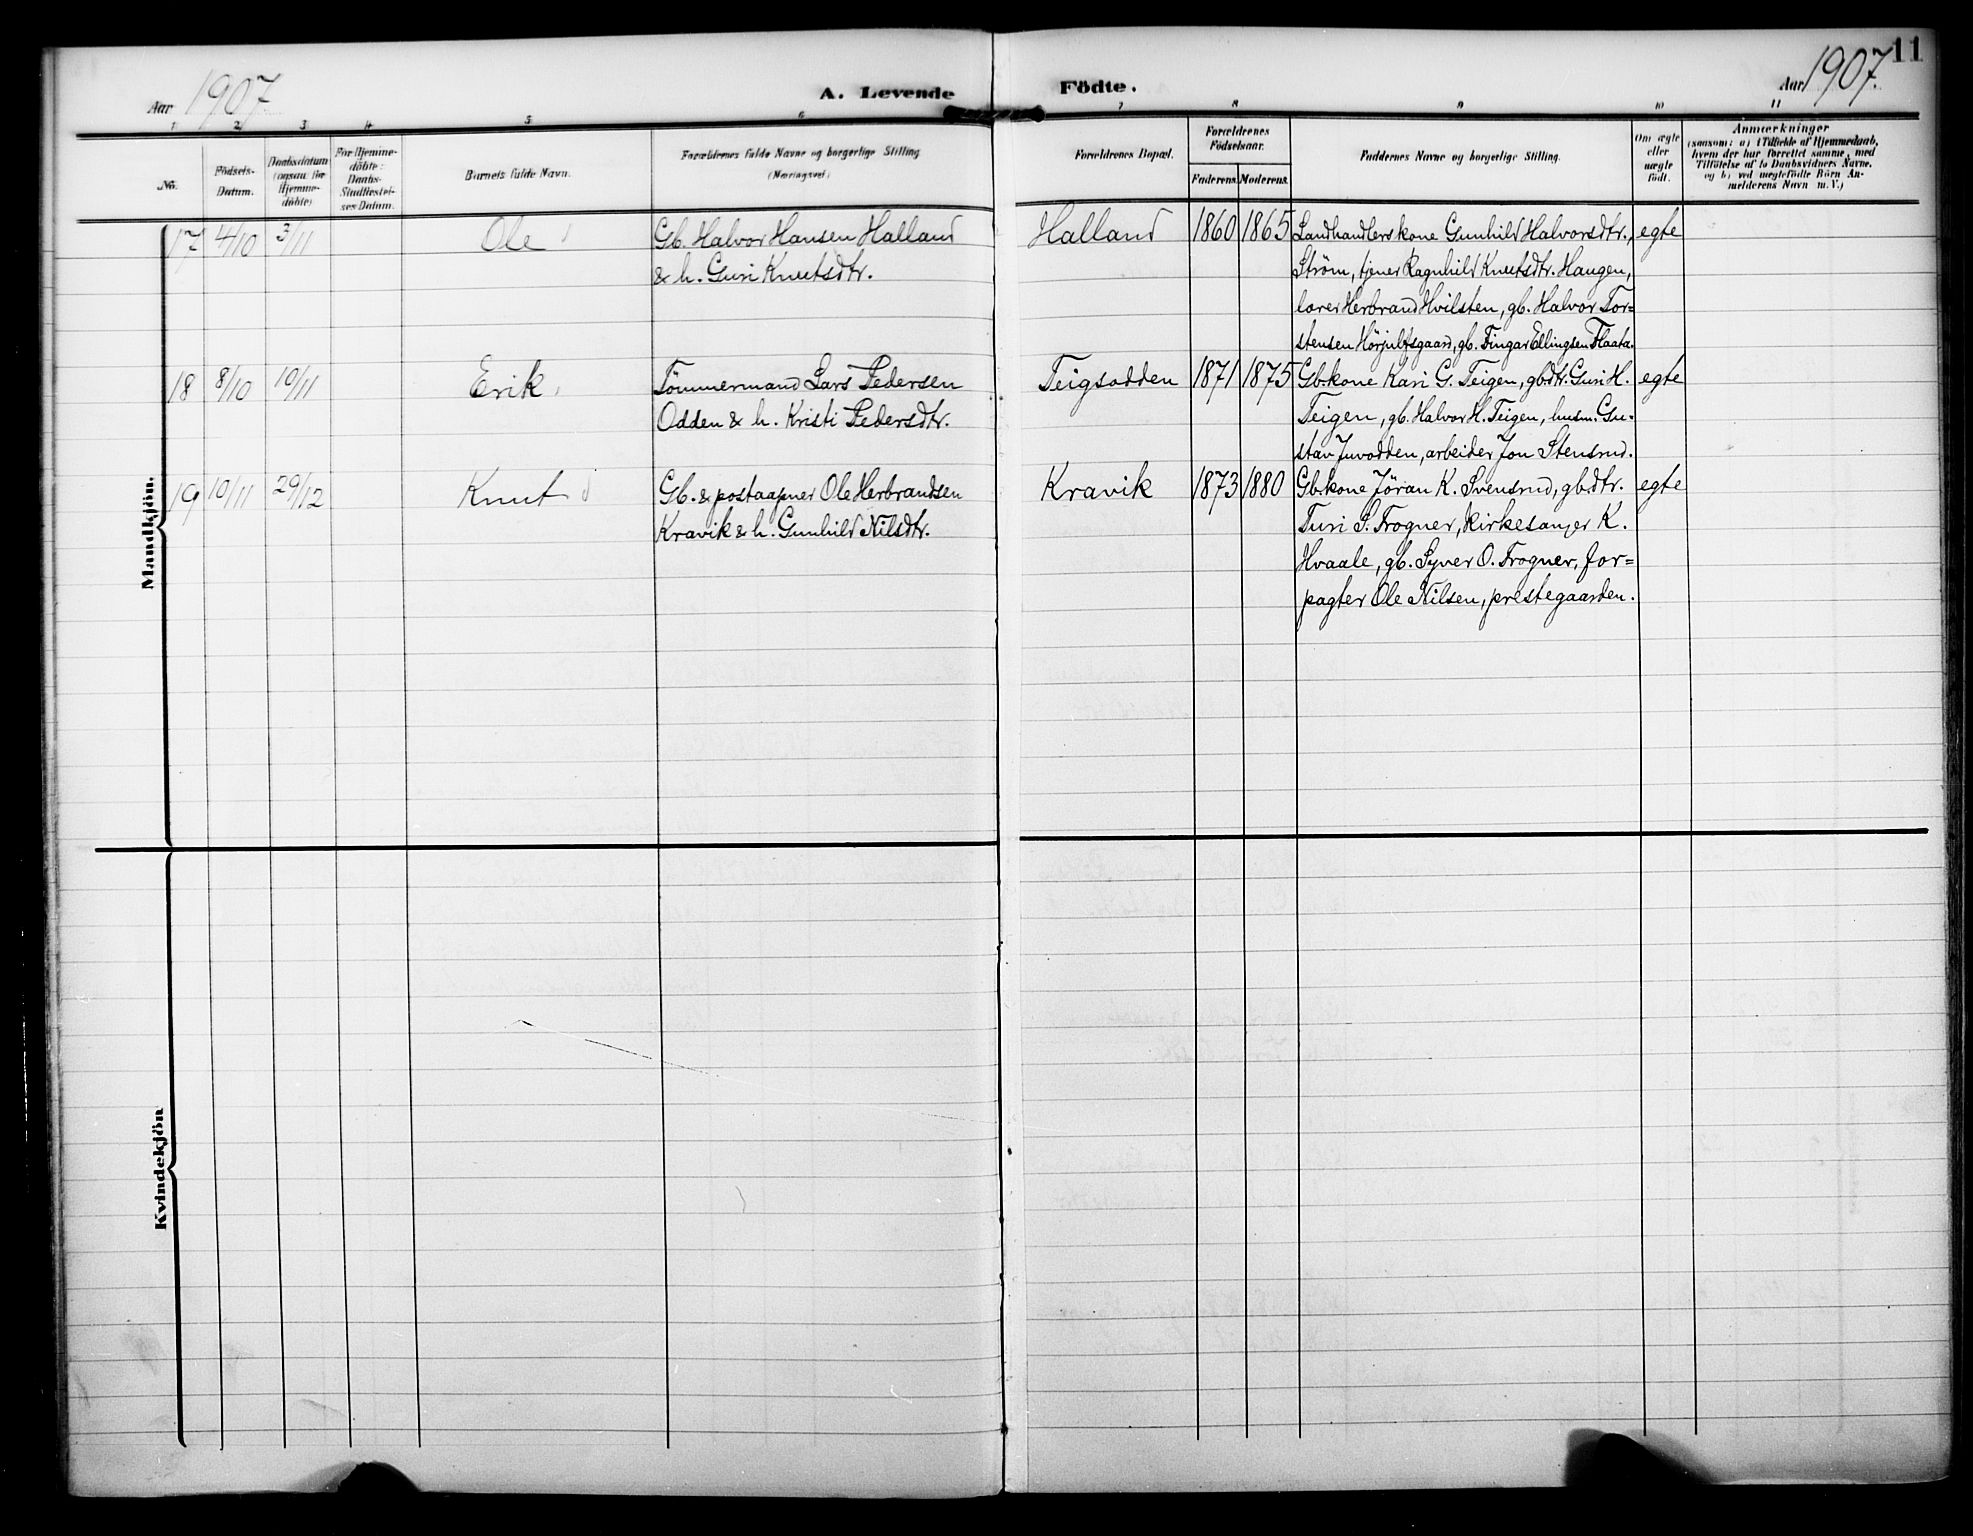 11
Aar 1907 A. Levende Födte. Aar 1907.
1 2 3 4 5 6 7 8 9 10 11
No.
Födsels-
Datum.
Daabsdatum
(ogsaa for
Hjemme-
døbte)
For Hjemme-
døbte:
Daabs-
Stadfæstel-
ses Datum.
Barnets fulde Navn.
Forældrenes fulde Navne og borgerlige Stilling
(Næringsvei)
Forældrenes Bopæl.
Forældrenes
Födselsaar.
Faderens. Moderens.
Faddernes Navne og borgerlige Stilling.
Om ægte
eller
uægte
født.
Anmærkninger
(saasom: a) i Tilfælde af Hjemmedaab,
hvem der har forrettet samme, med
Tilföielse af to Daabsvidners Navne,
og b) ved uægtefödte Börn An-
melderens Navn m. V.)
Mandkjön.
17 4/10 3/11 Ole Gb. Halvor Hansen Halland
& h. Guri Knutsdtr.
Halland 1860 1865 Landhandlerskone Gunhild Halvorsdtr., egte
Ström, tjener Ragnhild Knutsdtr. Haugen,
lærer Herbrand Hvilsten, gb. Halvor Tor=
stensen Hörjulfsgaard, gb. Fingar Ellingsen Flaata.
18 8/10 10/11 Erik Tömmermand Lars Pedersen
Odden & h. Kristi Pedersdtr.
Teigsodden 1871 1875 Gbkone Kari G. Teigen, gbdtr. Guri H. egte
Teigen, gb. Halvor H. Teigen, husm. Gu-
stav Juvodden, arbeider Jon Stensrud.
19 10/11 29/12 Knut Gb. & postaapner Ole Herbrandsen
Kravik & h. Gunhild Nilsdtr.
Kravik 1873 1880 Gbkone Jöran K. Svensrud, gbdtr. egte
Turi S. Frogner, kirkesanger K.
Hvaale, gb. Syver O. Frogner, for=
pagter Ole Nilsen, prestegaarden.
Kvindekjön